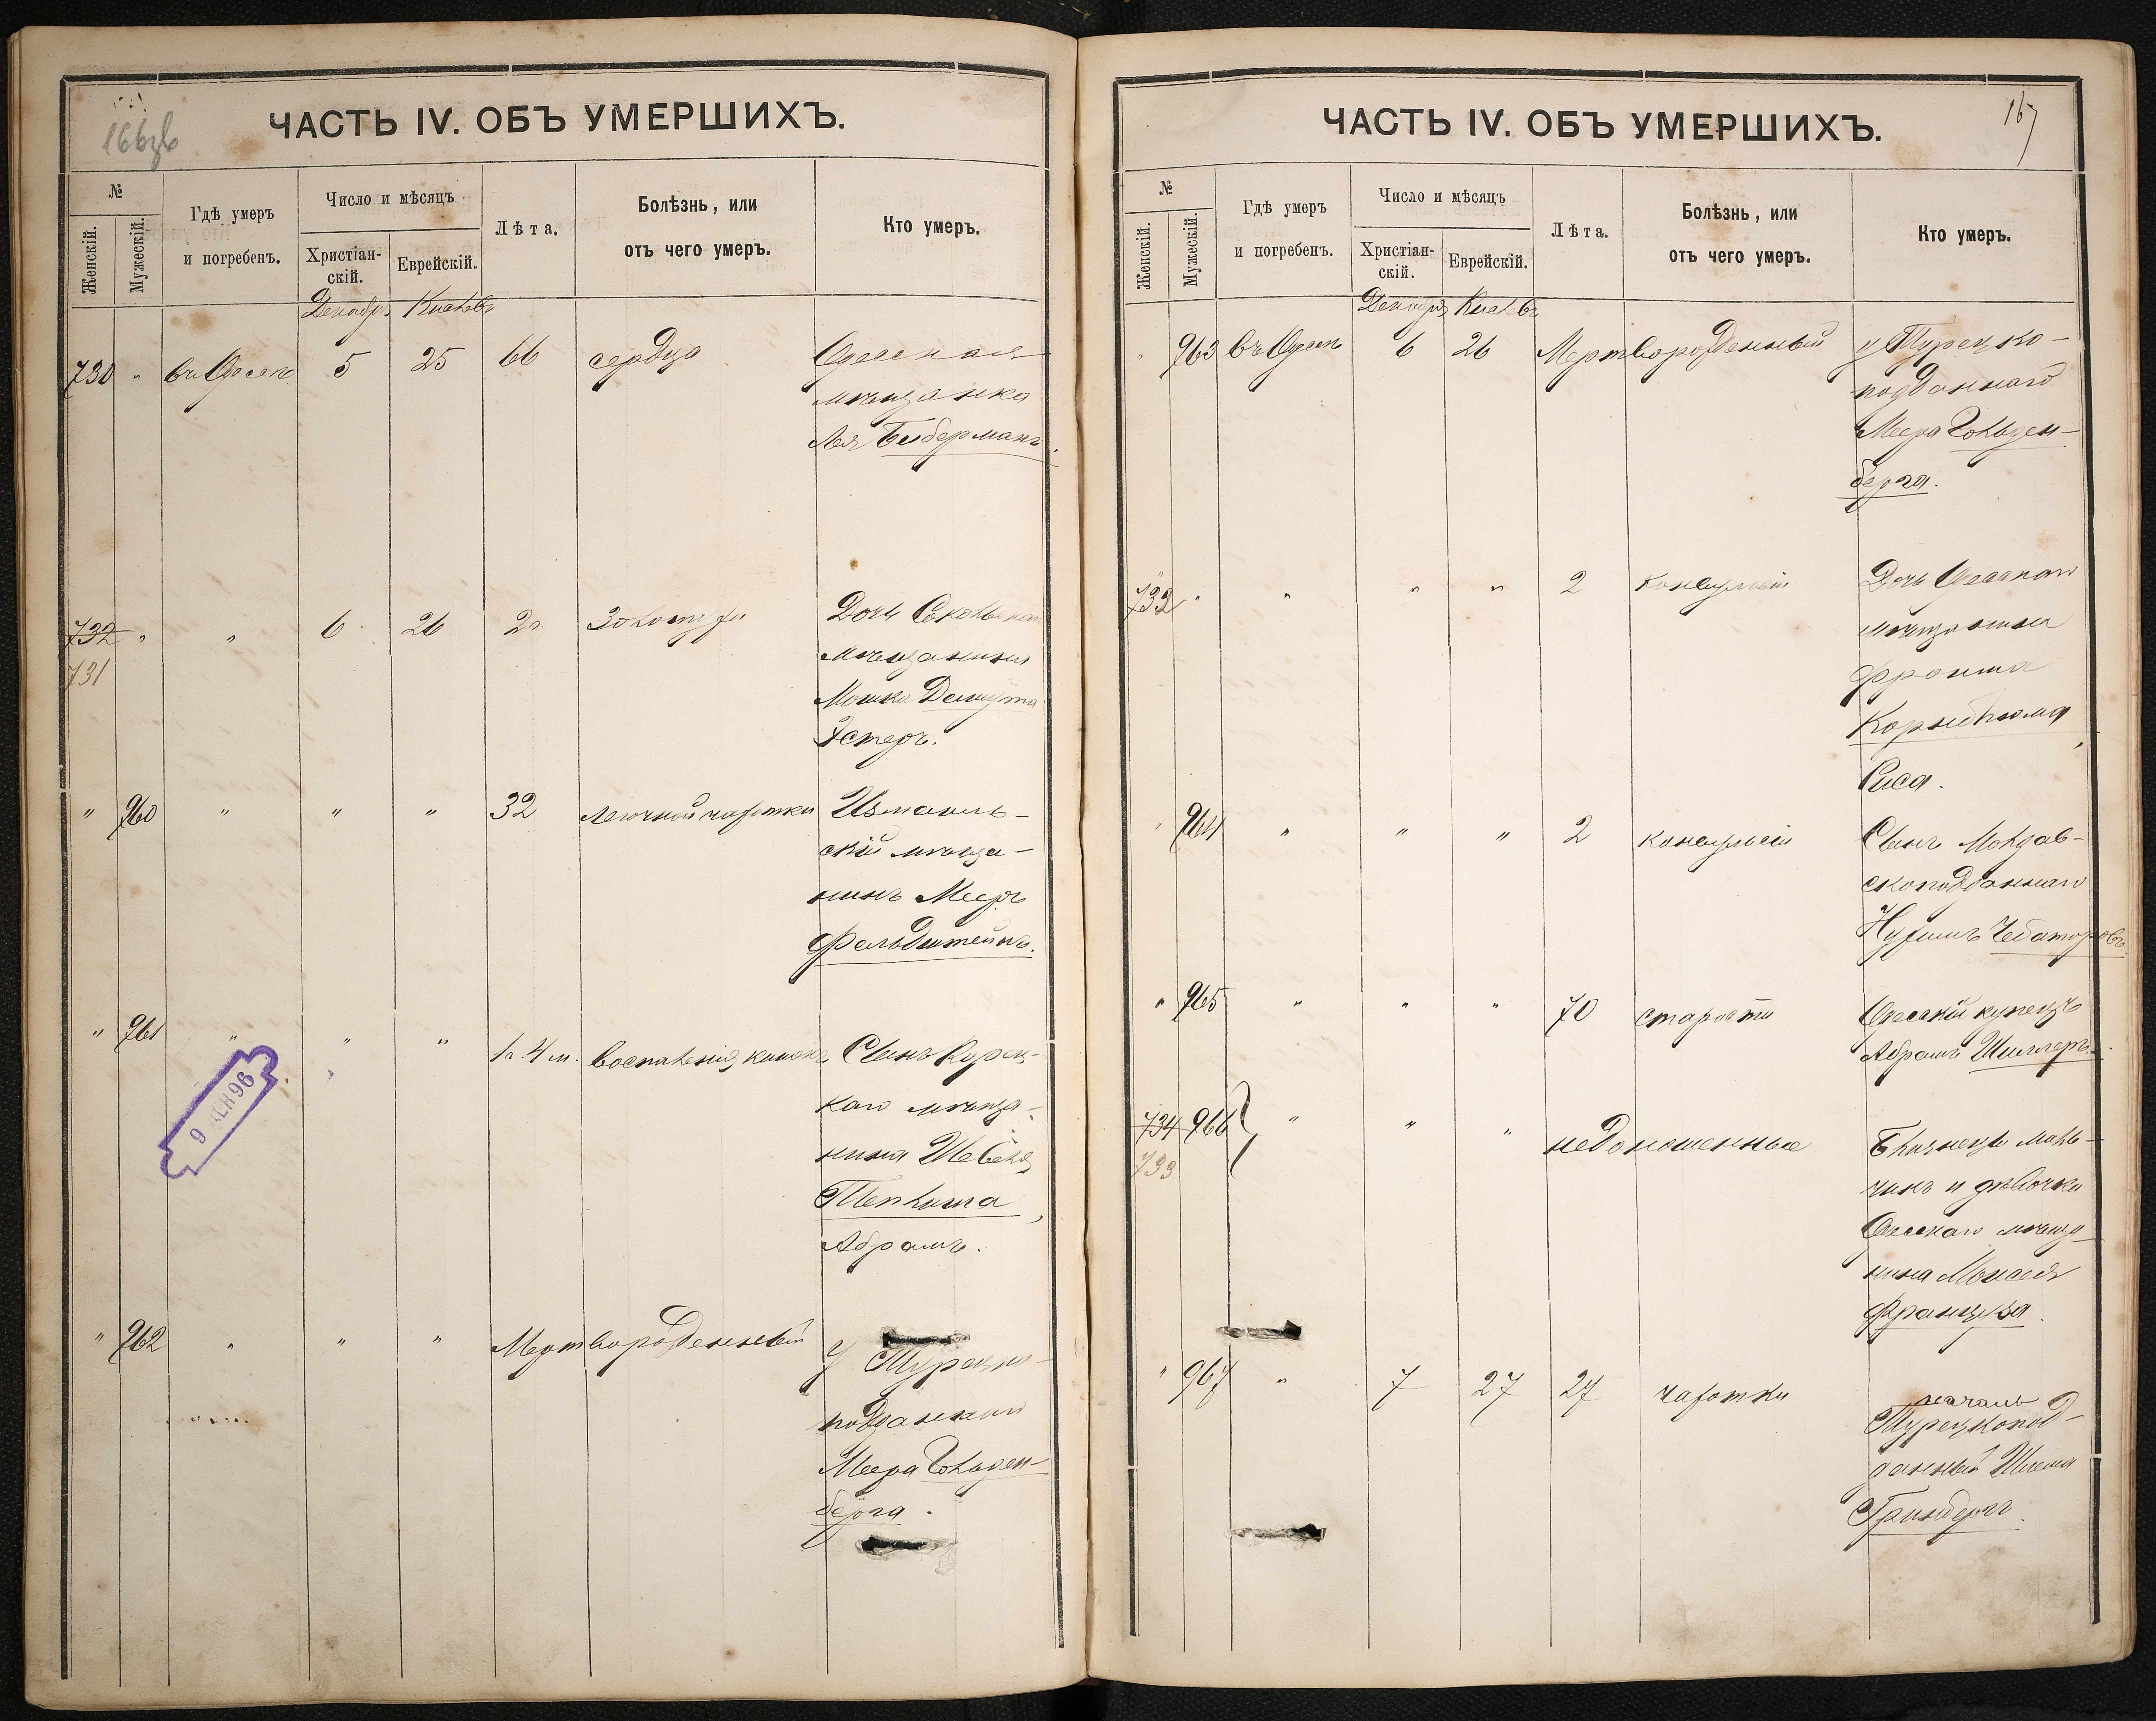 166об
ЧАСТЬ IV. ОБЪ УМЕРШИХЪ.
№
Женскій.
Мужескій.
Гдѣ умеръ
и погребенъ.
Число и мѣсяцъ
Христіан-
скій.
Еврейскій.
Лѣта.
Болѣзнь, или
отъ чего умеръ.
Кто умеръ.
Декабрь Кислевъ
730 " въ Одессѣ 5 25 66 сердца Одесская
мѣщанка
Лея Бидерманъ.
732 " " 6 26 2г. Золотухи Дочь
731
мѣщанина
Мошка
Эстеръ.
" 960 " " " 32 легочной чахотки Измаиль-
скій мѣща-
нинъ Мееръ
Фельдштейнъ.
" 961 " " " 1г. 4 м. воспаленія кишекъ Сынъ Корец-
каго мѣща-
нина
Теплица,
Абрамъ.
9 96
" 962 " " " Мертворожденный У Турецко-
подданнаго
Меера Гольден-
берга.
167
ЧАСТЬ IV. ОБЪ УМЕРШИХЪ.
№
Женскій.
Мужескій.
Гдѣ умеръ
и погребенъ.
Число и мѣсяцъ
Христіан-
скій.
Еврейскій.
Лѣта.
Болѣзнь, или
отъ чего умеръ.
Кто умеръ.
Декабрь Кислевъ
" 963 въ Одессѣ 6 26 Мертворожденный у Турецко-
подданнаго
Меера Гольден-
берга.
732 " " " " 2 конвульсіи Дочь Одесскаго
мѣщанина
Фроима
Корнблюма,
Риса.
" 964 " " " 2 конвульсіи Сынъ Молдав-
скоподданнаго
Нухимъ
" 965 " " " 70 старости Одесскій купецъ
Абрамъ Шиллеръ.
734 966 " " " недоношенные Близнецы маль-
733
чикъ и дѣвочки
Одесскаго мѣща-
нина Моисея
Француза.
" 967 " 7 27 27 чахотки
Турецкопод-
данный Шлема
Гринбергъ.